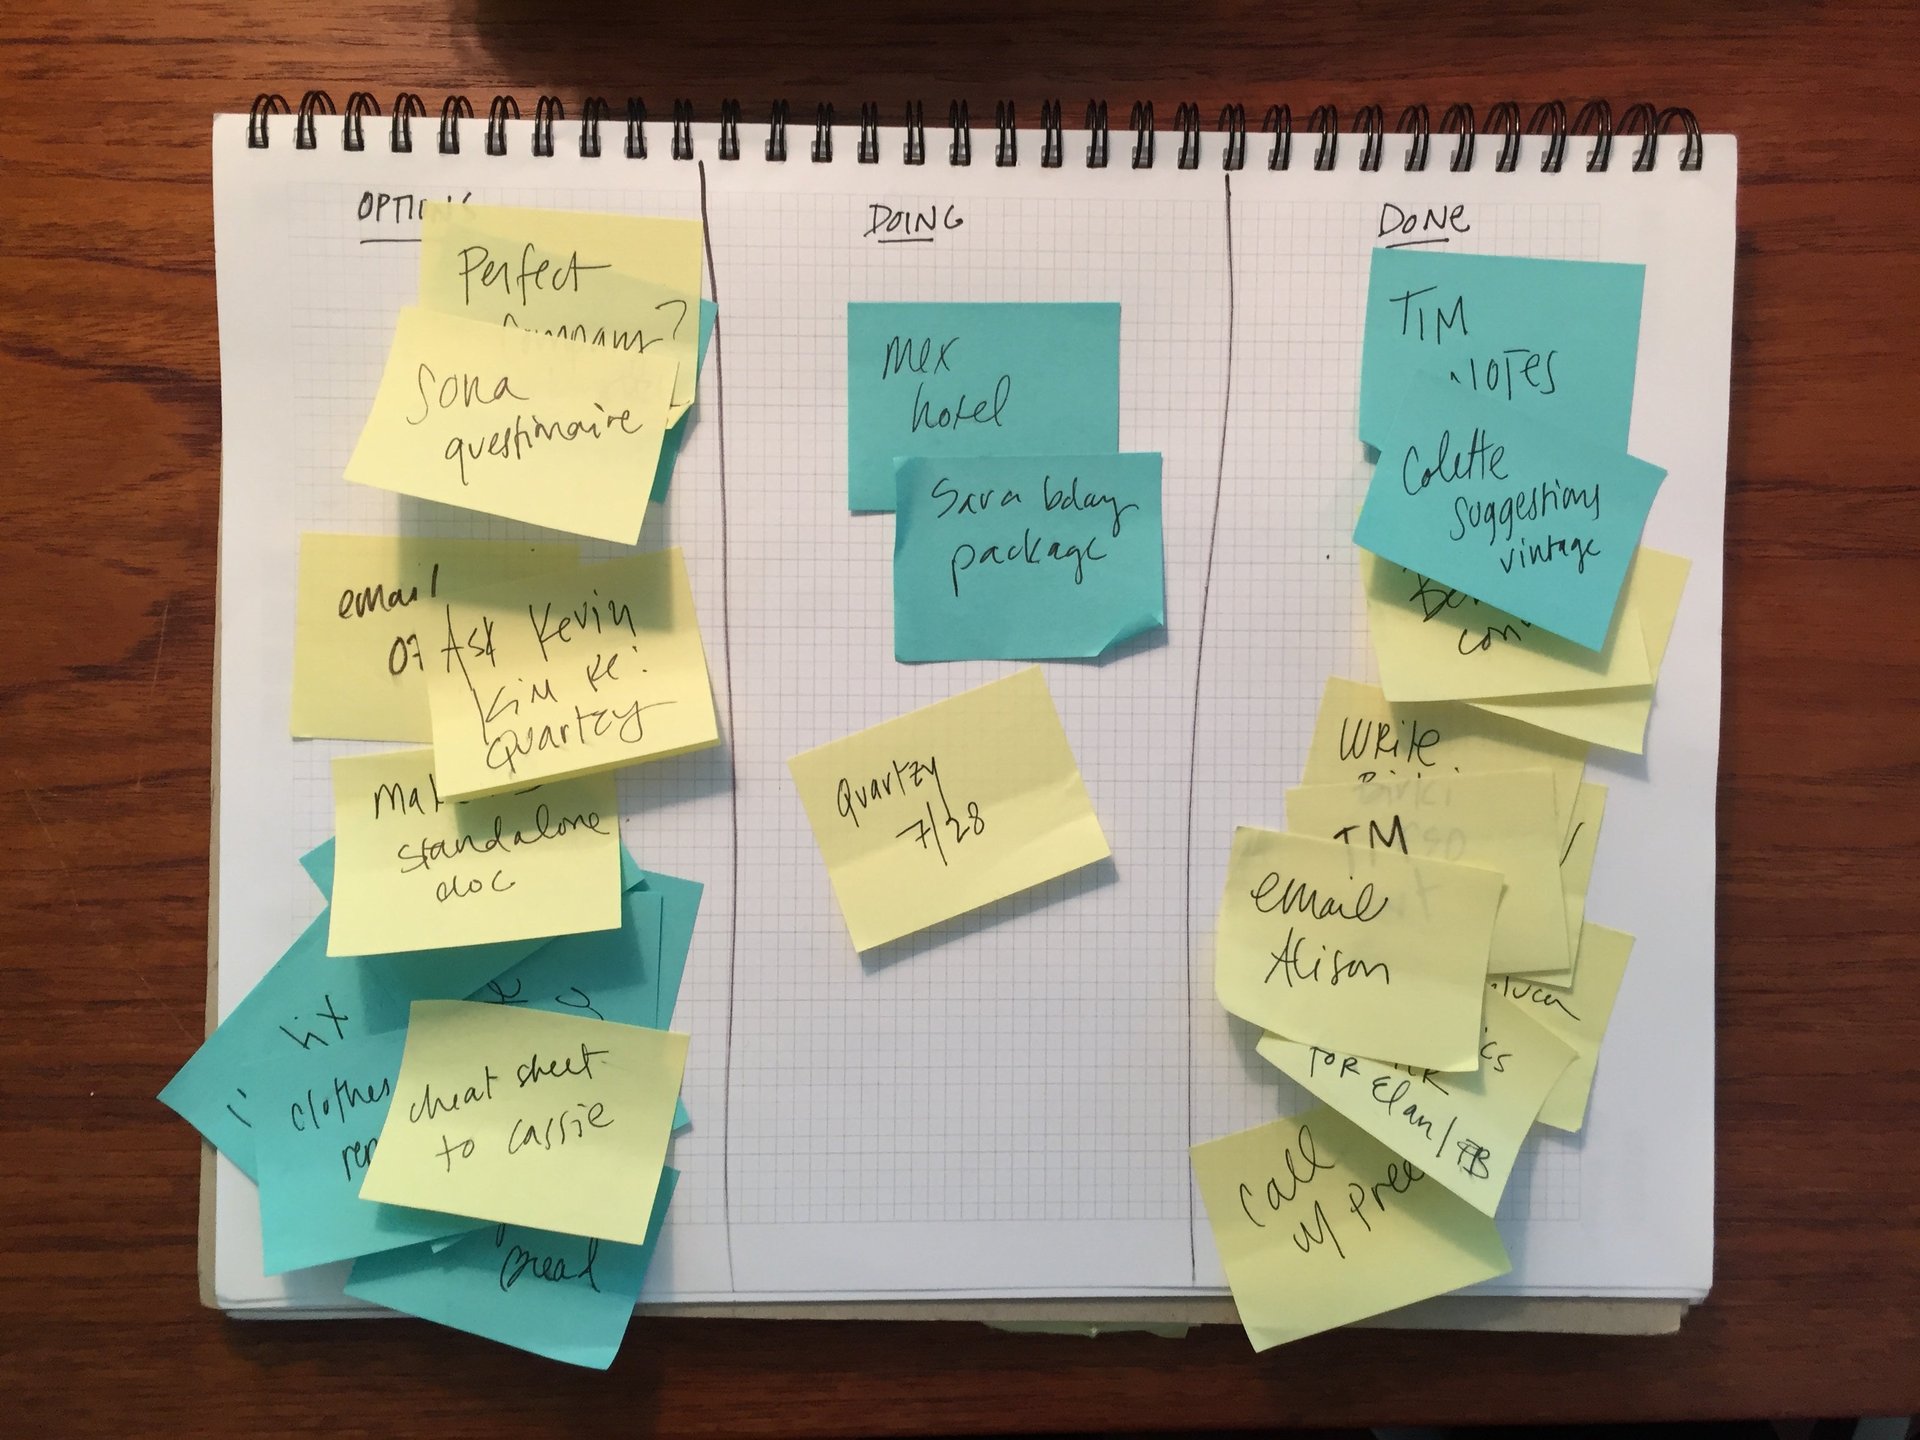 DOING
DONE
Perfect
Sona
questionnaire
email
07
Ask Kevin
Kim Re:
Quartzy
standalone
doc
clothes
cheat sheet
to Cassie
Bread
Mex
hotel
Sara bday
package
Quartzy
7/28
TIM
NOTES
Colette
suggestions
vintage
Write
Birki
TM
email
Alison
FOR Elan/FB
Call
w/ Pree